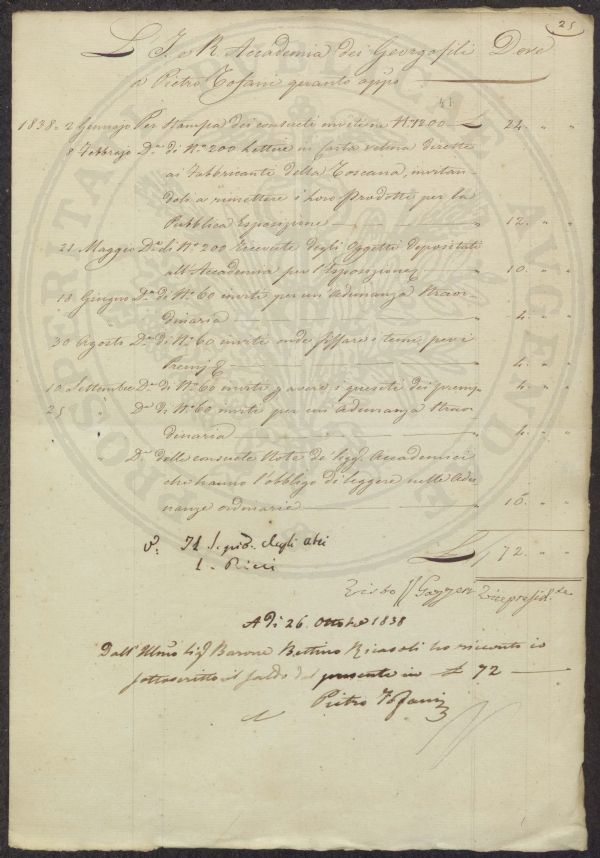 25
L' I. e R. Accademia dei Georgofili Deve
a Pietro Tofani quanto app.o
41
1838. 2 Gennajo Per Stampa dei consueti inviti in N.o 1200 — £ 24. " "
8 Febbrajo D.a di N.o 200 Lettere in carta velina dirette
ai Fabbricanti della Toscana, invitan
doli a rimettere i loro Prodotti per la
Pubblica Esposizione — " 12. " "
21 Maggio D.a di N.o 200 Ricevute degli Oggetti depositati
all'Accademia per l'Esposizione — " 10. " "
18 Giugno D.a di N.o 60 inviti per un'Adunanza Straor
dinaria — " 4. " "
30 Agosto D.a di N.o 60 inviti onde fissare i temi per i
Premj — " 4. " "
10 Settembre D.a di N.o 60 inviti p avere i quesiti dei premj " 4. " "
25 D.a di N.o 60 inviti per un'Adunanza Straor
dinaria — " 4. " "
" D.a delle consuete Note de' Sigg. Accademici
che hanno l'obbligo di leggere nelle Adu
nanze ordinarie — " 10. " "
degli
£ 72. " "
1. Ricci
Visto Gazzeri Vicepresid.te
A dì 26 Ottobre 1838
Dall' Illmo Sig.r Barone Bettino Ricasoli ho ricevuto io
sottoscritto il saldo del presente in £ 72 —
Pietro Tofani
PROSPERITATI PUBLICAE AUGENDAE